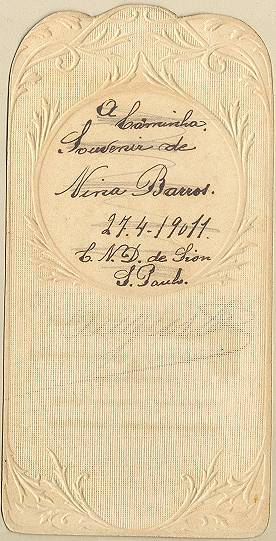 A
Caminha.
Souvenir de
Nina Barros.
27.4-19011.
C. N. D. de Sion
S. Paulo.